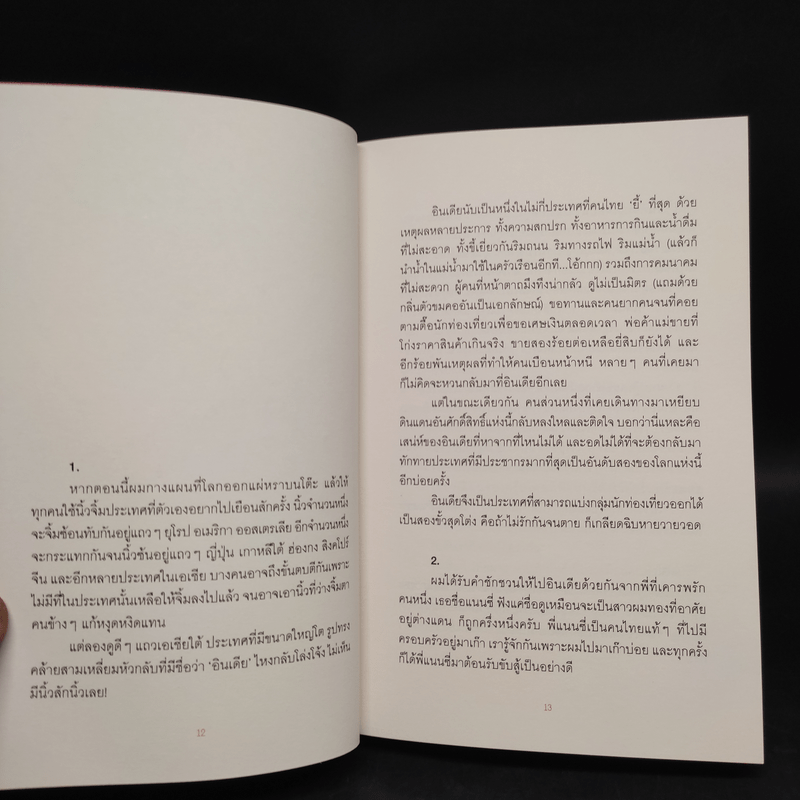 1.
หากตอนนี้ผมกางแผนที่โลกออกแผ่หราบนโต๊ะ แล้วให้
ทุกคนใช้นิ้วจิ้มประเทศที่ตัวเองอยากไปเยือนสักครั้ง นิ้วจำนวนหนึ่ง
จะจิ้มซ้อนทับกันอยู่แถวๆ ยุโรป อเมริกา ออสเตรเลีย อีกจำนวนหนึ่ง
จะกระแทกกันจนนิ้วซ้นอยู่แถวๆ ญี่ปุ่น เกาหลีใต้ ฮ่องกง สิงคโปร์
จีน และอีกหลายประเทศในเอเชีย บางคนอาจถึงขั้นตบตีกันเพราะ
ไม่มีที่ในประเทศนั้นเหลือให้จิ้มลงไปแล้ว จนอาจเอานิ้วที่ว่างจิ้มตา
คนข้างๆ แก้หงุดหงิดแทน
แต่ลองดูดีๆ แถวเอเชียใต้ ประเทศที่มีขนาดใหญ่โต รูปทรง
คล้ายสามเหลี่ยมหัวกลับที่มีชื่อว่า 'อินเดีย' ไหงกลับโล่งโจ้ง ไม่เห็น
มีนิ้วสักนิ้วเลย!
12
อินเดียนับเป็นหนึ่งในไม่กี่ประเทศที่คนไทย 'ยี้' ที่สุด ด้วย
เหตุผลหลายประการ ทั้งความสกปรก ทั้งอาหารการกินและน้ำดื่ม
ที่ไม่สะอาด ทั้งขี้เยี่ยวกันริมถนน ริมทางรถไฟ ริมแม่น้ำ (แล้วก็
นำน้ำในแม่น้ำมาใช้ในครัวเรือนอีกที...โอ้กกก) รวมถึงการคมนาคม
ที่ไม่สะดวก ผู้คนที่หน้าตาถมึงทึงน่ากลัว ดูไม่เป็นมิตร (แถมด้วย
กลิ่นตัวขมคออันเป็นเอกลักษณ์) ขอทานและคนยากคนจนที่คอย
ตามตื๊อนักท่องเที่ยวเพื่อขอเศษเงินตลอดเวลา พ่อค้าแม่ขายที่
โก่งราคาสินค้าเกินจริง ขายสองร้อยต่อเหลือยี่สิบก็ยังได้ และ
อีกร้อยพันเหตุผลที่ทำให้คนเบือนหน้าหนี หลายๆ คนที่เคยมา
ก็ไม่คิดจะหวนกลับมาที่อินเดียอีกเลย
แต่ในขณะเดียวกัน คนส่วนหนึ่งที่เคยเดินทางมาเหยียบ
ดินแดนอันศักดิ์สิทธิ์แห่งนี้กลับหลงใหลและติดใจ บอกว่านี่แหละคือ
เสน่ห์ของอินเดียที่หาจากที่ไหนไม่ได้ และอดไม่ได้ที่จะต้องกลับมา
ทักทายประเทศที่มีประชากรมากที่สุดเป็นอันดับสองของโลกแห่งนี้
อีกบ่อยครั้ง
อินเดียจึงเป็นประเทศที่สามารถแบ่งกลุ่มนักท่องเที่ยวออกได้
เป็นสองขั้วสุดโต่ง คือถ้าไม่รักกันจนตาย ก็เกลียดฉิบหายวายวอด
2.
ผมได้รับคำชักชวนให้ไปอินเดียด้วยกันจากพี่ที่เคารพรัก
คนหนึ่ง เธอชื่อแนนซี่ ฟังแค่ชื่อดูเหมือนจะเป็นสาวผมทองที่อาศัย
อยู่ต่างแดน ก็ถูกครึ่งหนึ่งครับ พี่แนนซี่เป็นคนไทยแท้ๆ ที่ไปมี
ครอบครัวอยู่มาเก๊า เรารู้จักกันเพราะผมไปมาเก๊าบ่อย และทุกครั้ง
ก็ได้พี่แนนซี่มาต้อนรับขับสู้เป็นอย่างดี
13